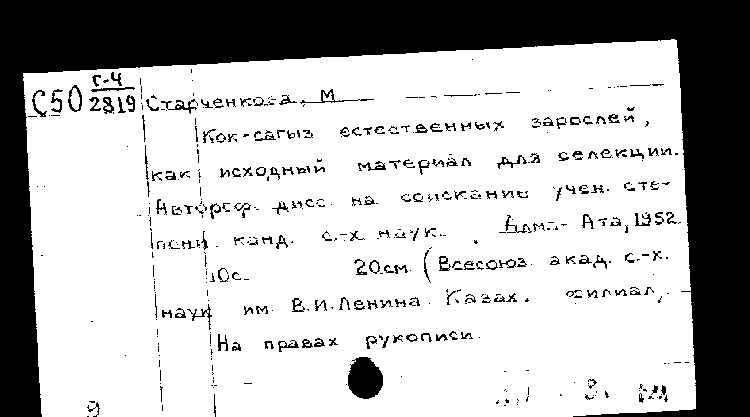 С50 Г-4
2819 Старченкова, М
Кок-сагыз естественных зарослей,
как исходный материал для селекции.
Автореф. дисс. на соискание учен. сте-
пени канд. с.-х. наук. Алма-Ата, 1952.
10с. 20см (Всесоюз. акад. с.-х.
наук им. В.И. Ленина. Казах. филиал).
На правах рукописи.
9